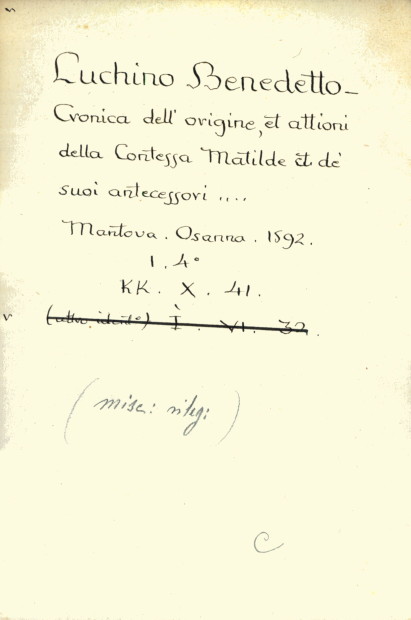 Luchino Benedetto_
Cronica dell' origine, et attioni
della Contessa Matilde et de'
suoi antecessori ....
Mantova . Osanna . 1592.
1 . 4°
KK . X . 41 .
(altro idente) I . VI . 32 .
(misc: rileg:)
C